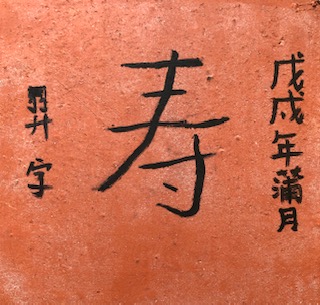 戊戌年蒲月
寿
羿字